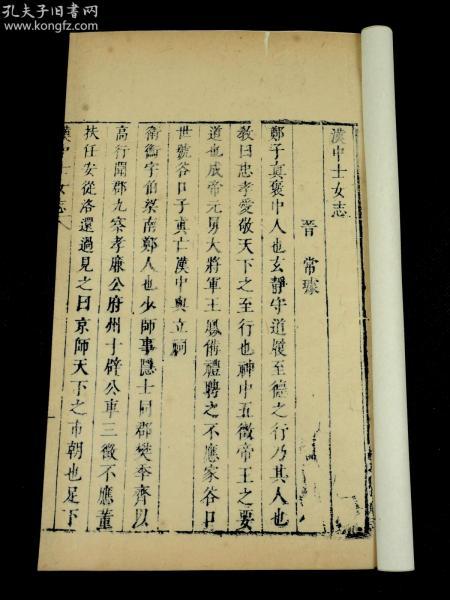 孔夫子旧书网
www.kongfz.com
漢中士女志
晉 常璩
鄭子真襃中人也玄靜守道履至德之行乃其人也
教曰忠孝愛敬天下之至行也神中五徵帝王之要
道也成帝元舅大將軍王鳳備禮聘之不應家谷口
世號谷口子真亡漢中與立祠
衛衡字伯梁南鄭人也少師事隱士同郡樊季齊以
高行聞郡九察孝廉公府州十辟公車三徵不應董
扶任安從洛還過見之曰京師天下之市朝也足下
漢中士女志